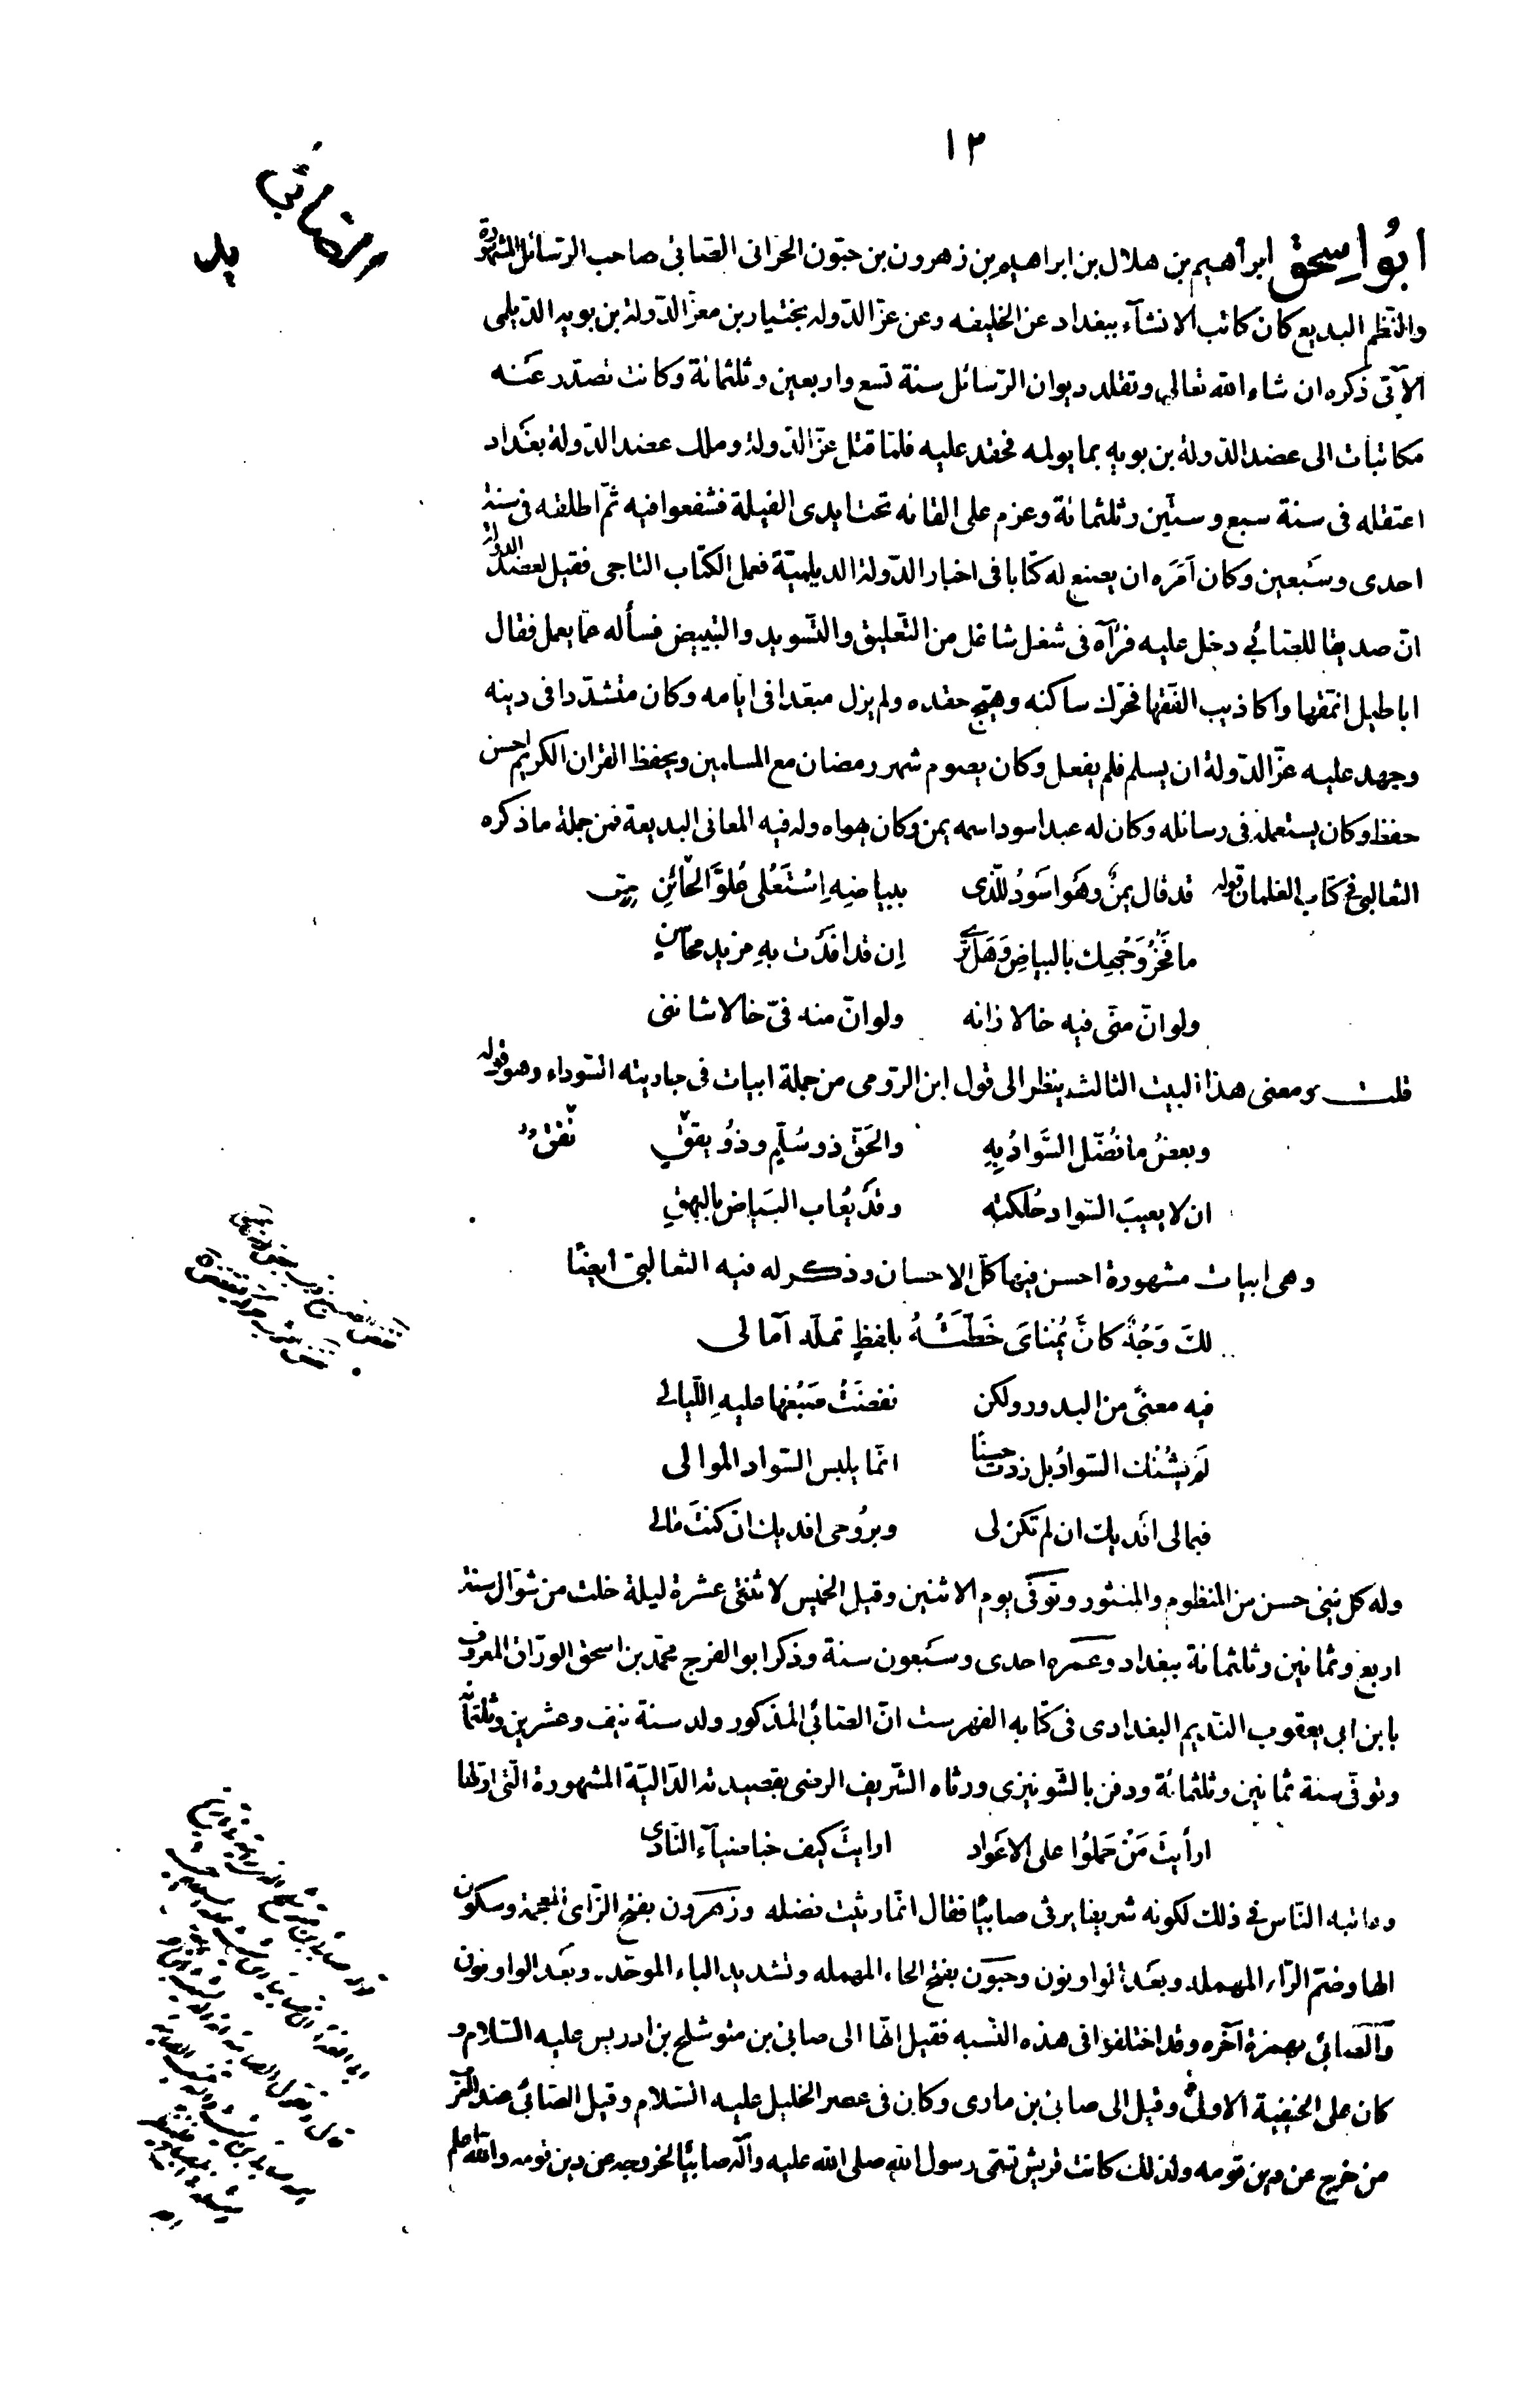 ١٣
الصابئ
يد
ابو اسحق ابرٰاهيم بن هلال بن ابراهيم بن زهرون بن حبّون الحرانى الصّابئ صاحب الرسائل المشهورة
والنّظم البديع كان كاتب الانشآء ببغداد عن الخليفه وعن عزّ الدّوله بختيار بن معزّ الدّولة بن بويه الدّيلمى
الآتى ذكره ان شاء الله تعالى وتقلد ديوان الرّسائل سنة تسع واربعين وثلثمائة وكانت تصدّر عنه
مكاتبات الى عضد الدّولة بن بويه بما يولمه فحقد عليه فلمّا قتل عزّ الدّولة وملك عضد الدّولة بغداد
اعتقله فى سنة سبع وستّين وثلثمائة وعزم على القائه تحت ايدى الفيلة فشفعوا فيه ثمّ اطلقه فى سنة
احدى وسبعين وكان اَمَرَه ان يصنع له كتابا فى اخبار الدّولة الديلميّة فعمل الكتاب التاجى فقيل لعضد الدولة
انّ صديقا للصّابئ دخل عليه فرآه فى شغل شاغل من التّعليق والتّسويد والتبييض فسأله عمّا يعمل فقال
اباطيل انمّقها واكاذيب الفّقها فحرّك ساكنه وهيّج حقده ولم يزل مبعّدا فى ايّامه وكان متشدّدا فى دينه
وجهد عليه عزّ الدّولة ان يسلم فلم يفعل وكان يصوم شهر رمضان مع المسلمين ويحفظ القران الكريم احسن
حفظ وكان يستعمله فى رسائله وكان له عبد اسود اسمه يمن وكان يهواه وله فيه المعانى البديعة فمن جملة ما ذكره
الثعالبى فى كتاب الغلمان قوله قد قال يمنٌ وهَو اسوَدُ للّذى ببياضِه اِستَعلى عُلوَّ الخائِنِ
ما فَخرُ وَجهِك بالبياضِ وَهَل تَرىٰ اِن قد افَدْت بهِ مزيد محاسنٍ
ولو انّ منّى فيه خالا زانه ولو انّ منه فىّ خالا شاننى
قلت ومعنى هذا البيت الثالث ينظر الى قول ابن الرّومى من جملة ابيات فى جاريته السّوداء وهو قوله
وبعضُ ما فُضّل السَّوادُ بِهِ والحَقّ ذو سُلّمٍ وذُو نفقٍ
ان لا يعيبَ السّواد حُلكته وقدْ يُعاب البَياض بالبهقِ
وهى ابيات مشهورة احسن فيها كلّ الاحسان وذكر له فيه الثعالبىّ ايضًا
لكَ وَجهٌ كانَّ يُمناىَ خَطّتْهُ بلفظٍ تملّه آمالى
فيه معنىً من البدور ولكن نفضَتْ صَبْغها عليهِ اللّيالى
لَم يَشُنْك السّوادُ بل زدت حسنًا انّما يلبس السّواد الموالى
فبمالى افديك ان لم تكن لى وبرُوحى افديك ان كنتَ مالى
وله كل شئ حسن من المنظوم والمنثور وتَوفّى يوم الاثنين وقيل الخميس لاثنتى عشرة ليلة خلت من شوّال سنة
اربع وثمانين وثلثمائة ببغداد وعمره احدى وسَبعون سنة وذكر ابو الفرج محمّد بن اسحق الورّاق المعروف
بابن ابى يعقوب النّديم البغدادى فى كتابه الفهرست انّ الصّابئ المذكور ولد سنة نيف وعشرين وثلثمائة
وتوفّى سنة ثمانين وثلثمائة ودفن بالشّونيزى ورثاه الشّريف الرضى بقصيدته الدّاليّة المشهورة الّتى اوّلها
ارأيتَ مَنْ حَملُوا على الاعواد ارايتَ كيف خبا ضيآء النّادى
وعاتبه النّاس فى ذلك لكونه شريفا يرثى صابيًا فقال انّما رثيت فضله وزهرون بفتح الزّاى المعجمة وسكون
الها وضمّ الرّاء المهمله وبعد الواو نون وحبّون بفتح الحاء المهمله وتشديد الباء الموحّدة وبعد الواو نون
والصّابئ بهمزة آخره وقد اختلفوا فى هذه النّسبه فقيل انّها الى صابئ بن متوشلح بن ادريس عليه السّلام و
كان على الحنيفية الاولىٰ وقيل الى صابئ بن مارى وكان فى عصر الخليل عليه السّلام وقيل الصّابئ عند العرب
من خرج عن دين قومه ولذلك كانت قريش تسمّى رسول الله صلى الله عليه وآله صابيًا لخروجه عن دين قومه والله اعلم